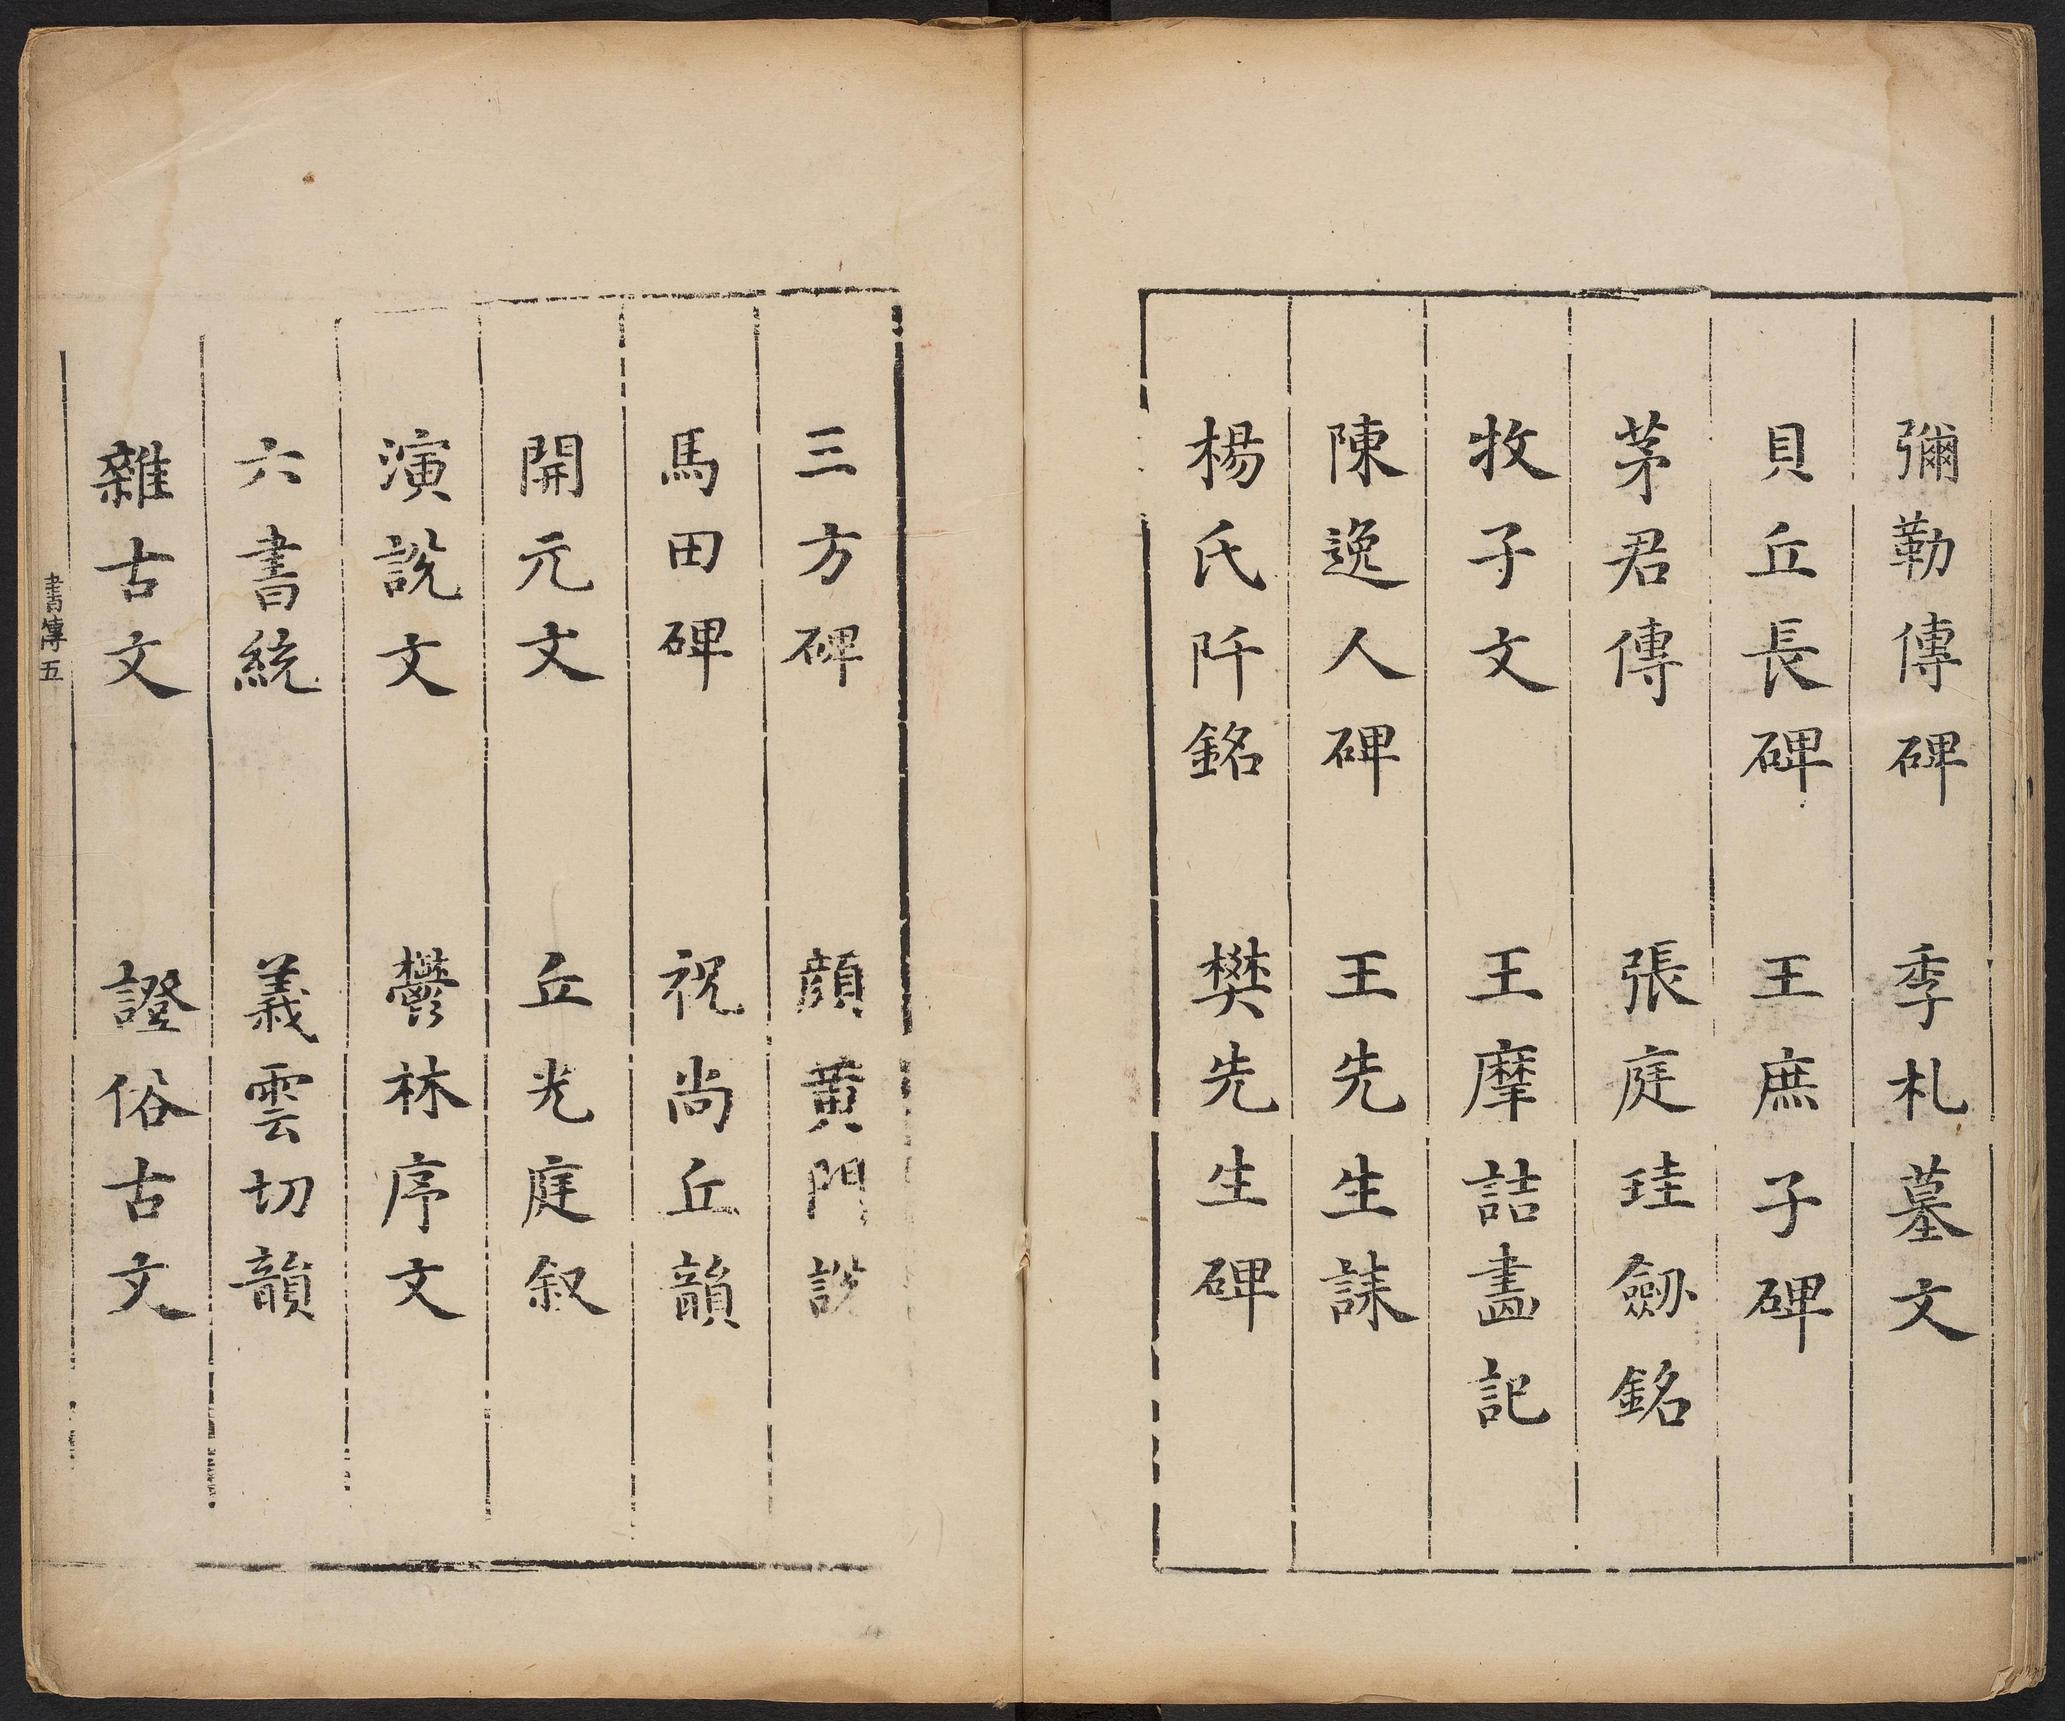 彌勒傳碑 季札墓文
貝丘長碑 王庶子碑
茅君傳 張庭珪劒銘
牧子文 王摩詰畫記
陳逸人碑 王先生誄
楊氏阡銘 樊先生碑
三方碑 顔黃門說
馬田碑 祝尚丘韻
開元文 丘光庭叙
演說文 鬱林序文
六書統 義雲切韻
雜古文 證俗古文
書傳五